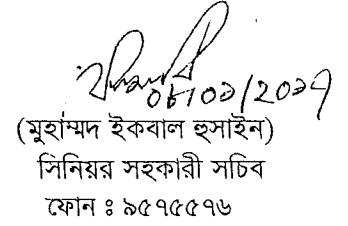 ০৮/০১/২০১৭
(মুহাম্মদ ইকবাল হুসাইন)
সিনিয়র সহকারী সচিব
ফোন ঃ ৯৫৭৫৫৭৬